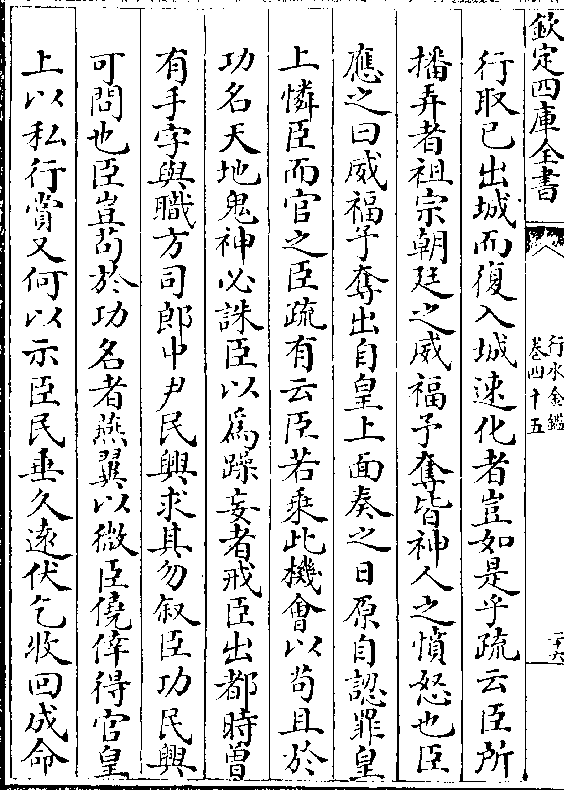 欽定四庫全書
行水金鑑
卷四十五
二十六
行取已出城而復入城速化者豈如是乎疏云臣所
播弄者祖宗朝廷之威福予奪皆神人之憤怒也臣
應之曰威福予奪出自皇上面奏之日原自認罪皇
上憐臣而官之臣疏有云臣若乘此機會以苟且於
功名天地鬼神必誅臣以爲躁妄者戒臣出都時曾
有手字與職方司郎中尹民興求其勿叙臣功民興
可問也臣豈苟於功名者燕翼以微臣僥倖得官皇
上以私行賞又何以示臣民垂久遠伏乞收回成命